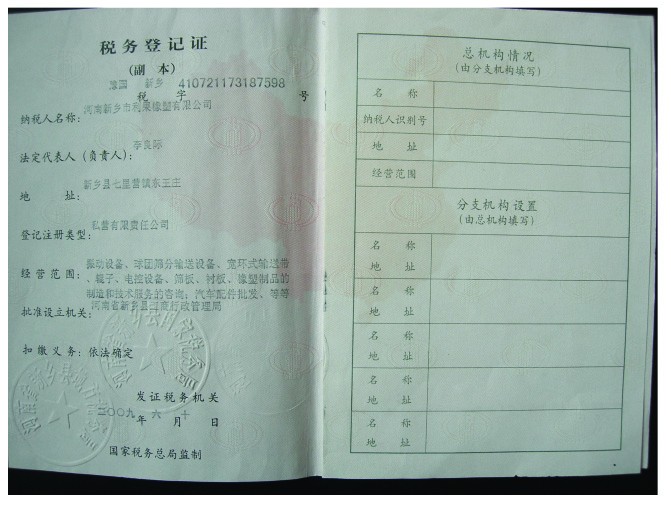 税务登记证
(副 本)
豫国 新乡 410721173187598
税 字 号
纳税人名称: 河南新乡市利果橡塑有限公司
法定代表人(负责人): 李良际
地 址: 新乡县七里营镇东王庄
登记注册类型: 私营有限责任公司
经 营 范 围: 振动设备、球团筛分输送设备、宽环式输送带
、辊子、电控设备、筛板、衬板、橡塑制品的
制造和技术服务的咨询; 汽车配件批发、等等
批准设立机关: 河南省新乡县工商行政管理局
扣 缴 义 务: 依法确定
发证税务机关
二00九年 六 月 十 日
国家税务总局监制
总机构情况
(由分支机构填写)
名 称
纳税人识别号
地 址
经营范围
分支机构设置
(由总机构填写)
名 称
地 址
名 称
地 址
名 称
地 址
名 称
地 址
名 称
地 址